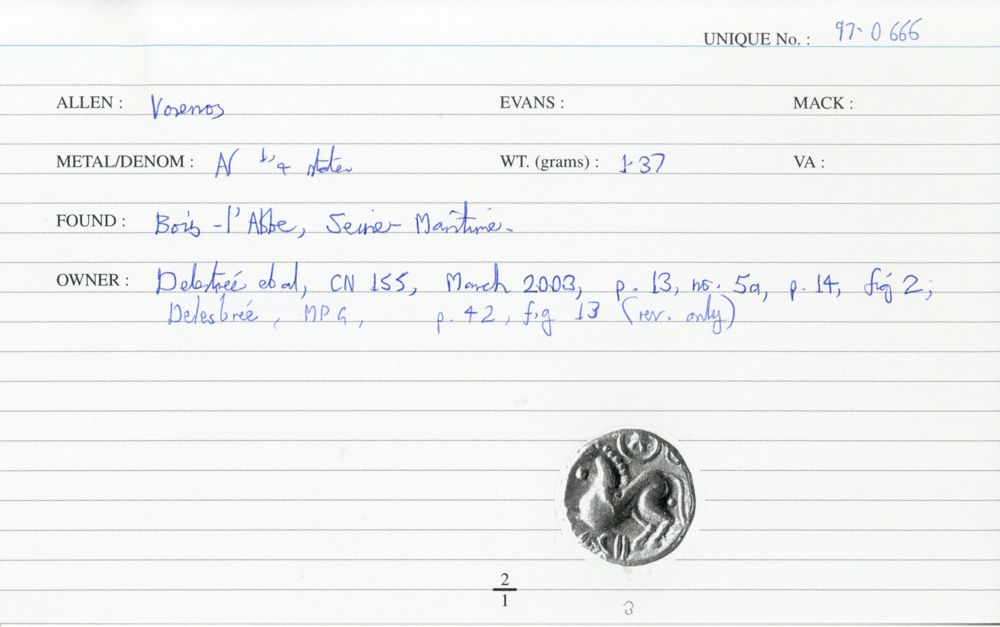 UNIQUE No. : 97-0666
ALLEN : Vosenos EVANS : MACK :
METAL/DENOM : AV 1/4 stater WT. (grams) : 1.37 VA :
FOUND : Bois-l'Abbe, Seine-Maritime.
OWNER : Delestreé et al, CN 155, March 2003, p. 13, no. 5a, p. 14, fig 2;
Delestreé, MPG, p. 42, fig 13 (rev. only)
2
1